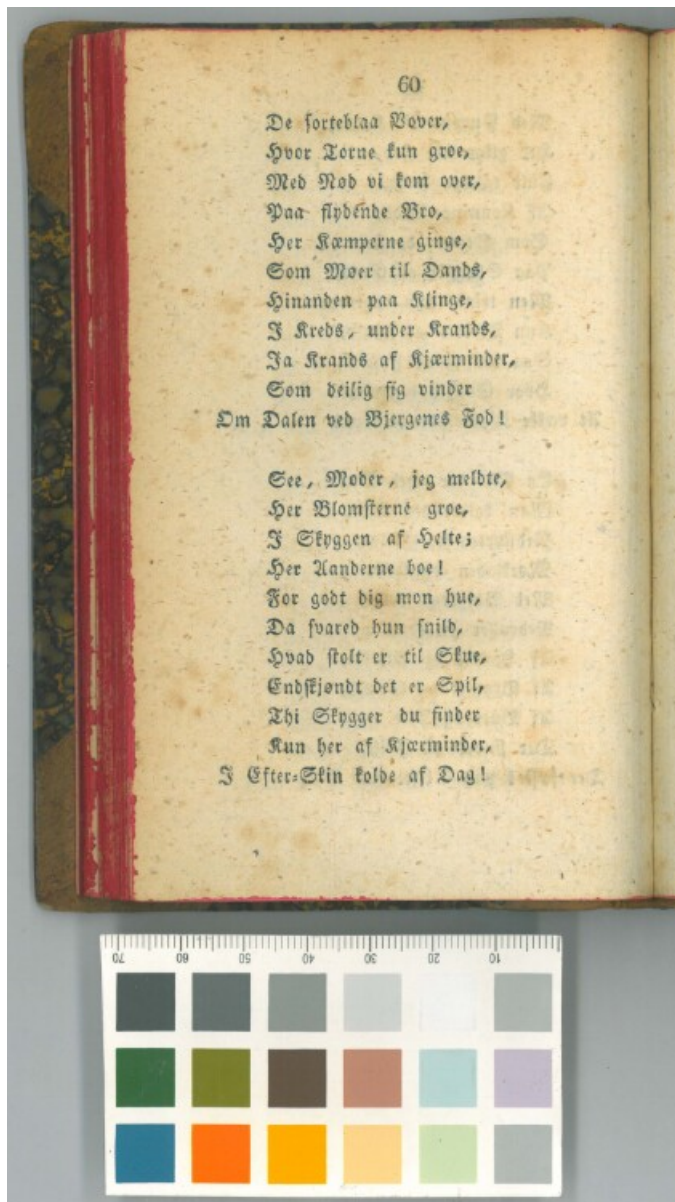 60
De sorteblaa Vover,
Hvor Torne kun groe,
Med Nød vi kom over,
Paa flydende Bro,
Her Kæmperne ginge,
Som Møer til Dands,
Hinanden paa Klinge,
I Kreds, under Krands,
Ja Krands af Kjærminder,
Som deilig sig vinder
Om Dalen ved Bjergenes Fod!
See, Moder, jeg meldte,
Her Blomsterne groe,
I Skyggen af Helte;
Her Aanderne boe!
For godt dig mon hue,
Da svared hun snild,
Hvad stolt er til Skue,
Endskjøndt det er Spil,
Thi Skygger du finder
Kun her af Kjærminder,
I Efter-Skin kolde af Dag!
70 60 50 40 30 20 10